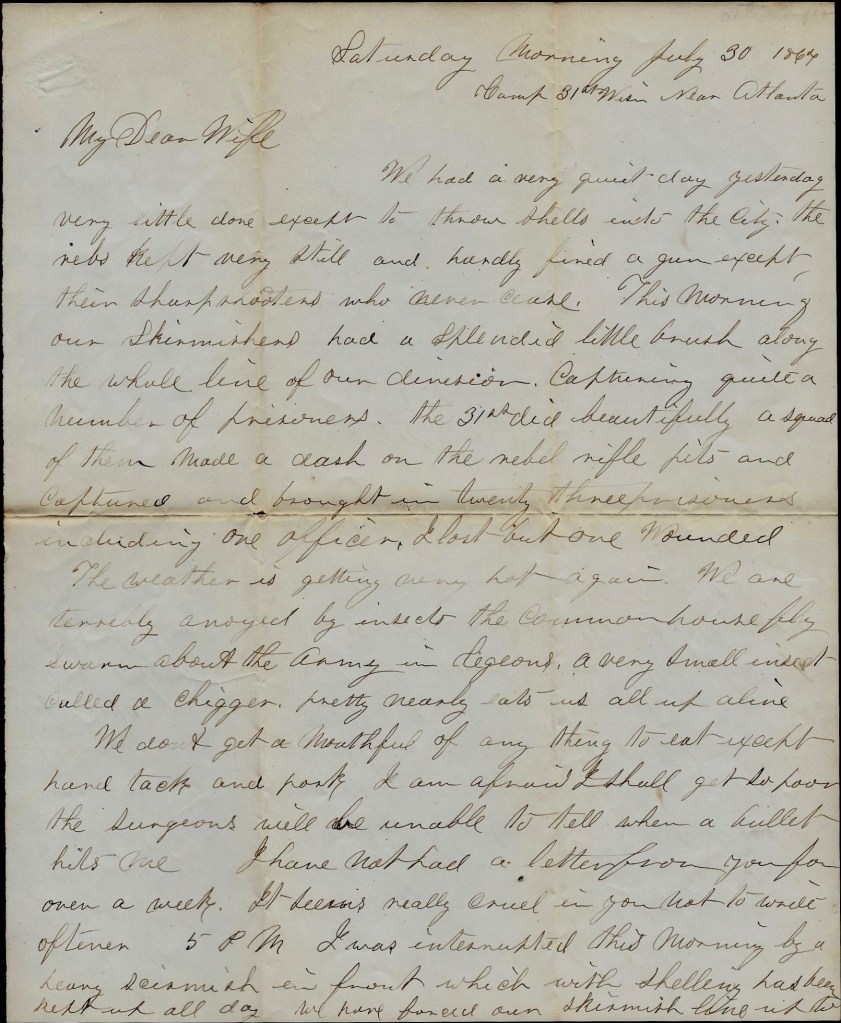 Saturday Morning July 30 1864
Camp 31st Wisn Near Atlanta
My Dear Wife
We had a very quiet day yesterday
very little done except to throw shells into the City. the
rebs kept very still and hardly fired a gun except
their sharpshooters who never cease. This Morning
our Skirmishers had a Splendid little brush along
the whole line of our division. Capturing quite a
number of prisoners. the 31st did beautifully a squad
of them Made a dash on the rebel rifle pits and
Captured and brought in twenty three prisoners
including one officer, I lost but one Wounded
The weather is getting very hot again. We are
terribly anoyed by insects the Common house fly
swarm about the Army in legeons. a very Small insect
Called a Chigger. pretty nearly eats us all up alive
We dont get a Mouthful of any thing to eat except
hard tack and pork I am afraid I shall get so poor
the Surgeons will be unable to tell when a bullet
hits me I have not had a letter from you for
over a week. It seems really Cruel in you not to write
oftener 5 P M I was interrupted this Morning by a
heavy scirmish in front which with shelling has been
kept up all day we have forced our skirmish line up to